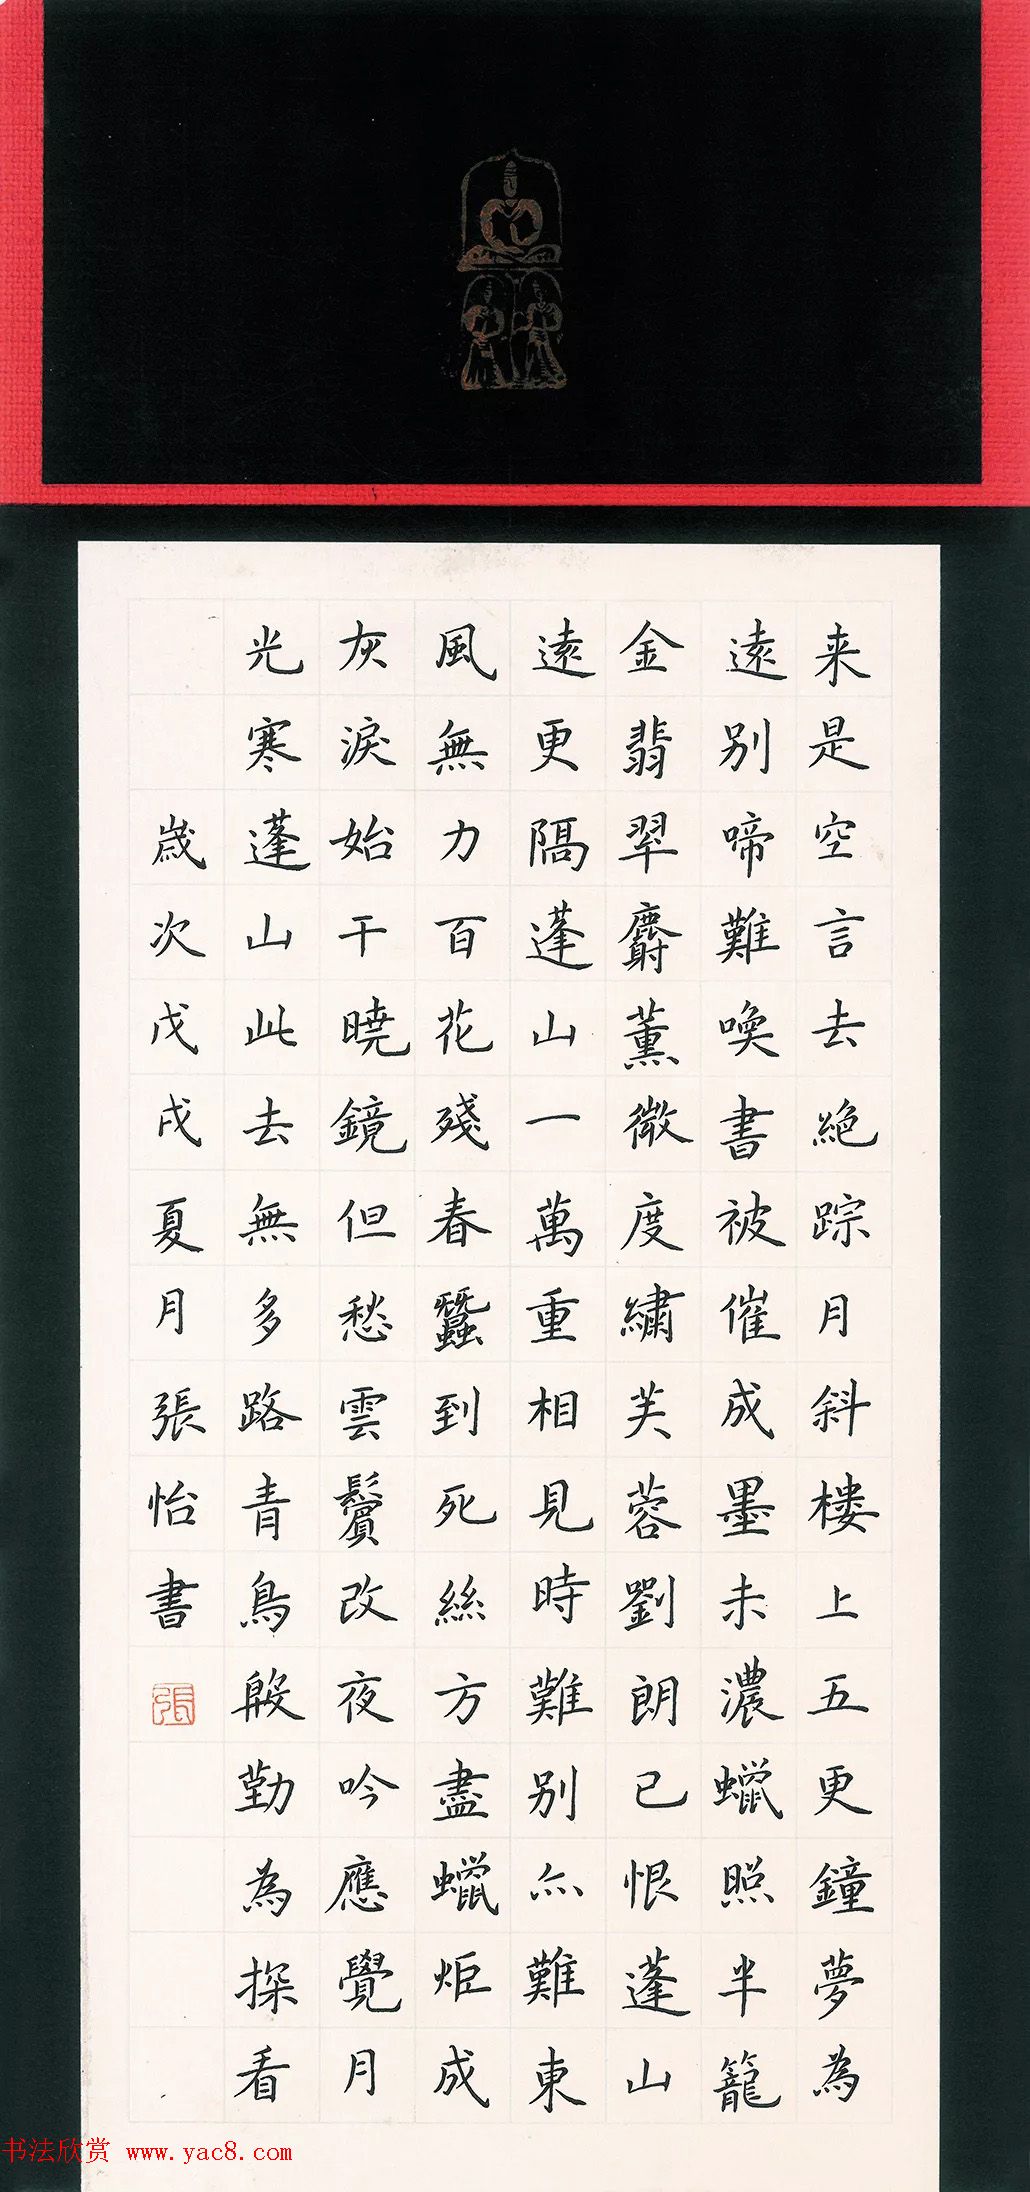 来是空言去絶踪月斜楼上五更鐘夢為
遠别啼難喚書被催成墨未濃蠟照半籠
金翡翠麝薰微度繡芙蓉劉朗已恨蓬山
遠更隔蓬山一萬重相見時難别亦難東
風無力百花殘春蠶到死絲方盡蠟炬成
灰淚始干曉鏡但愁雲鬢改夜吟應覺月
光寒蓬山此去無多路青鳥殷勤為探看
歲次戊戌夏月張怡書
張
书法欣赏 www.yac8.com